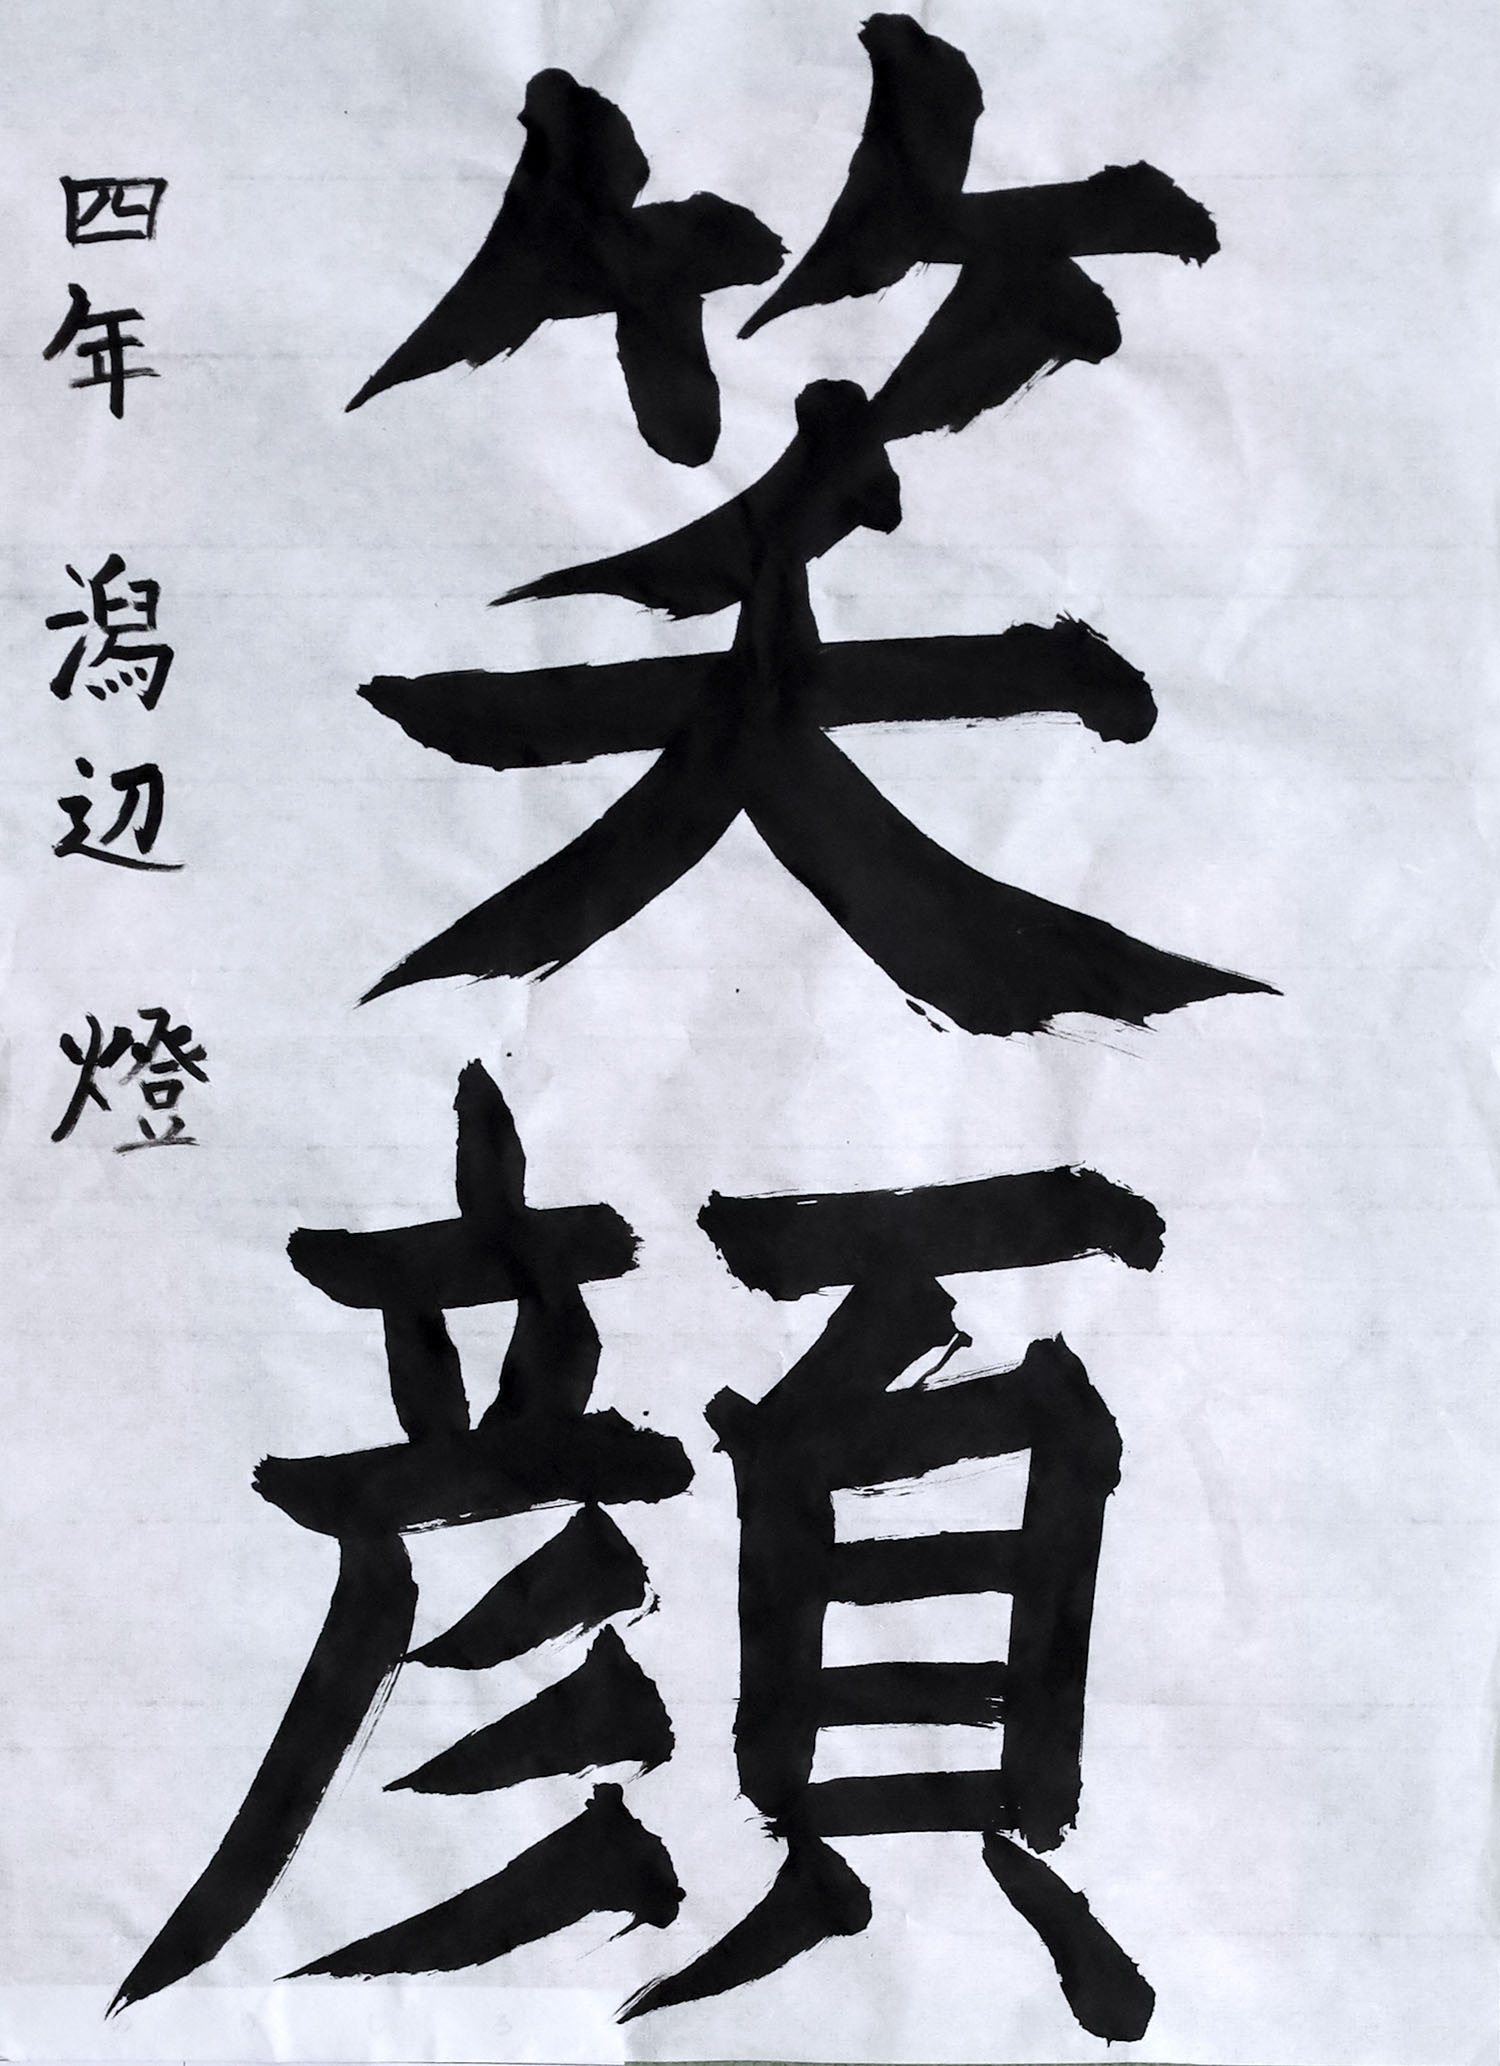 笑顔
四年 潟辺 燈